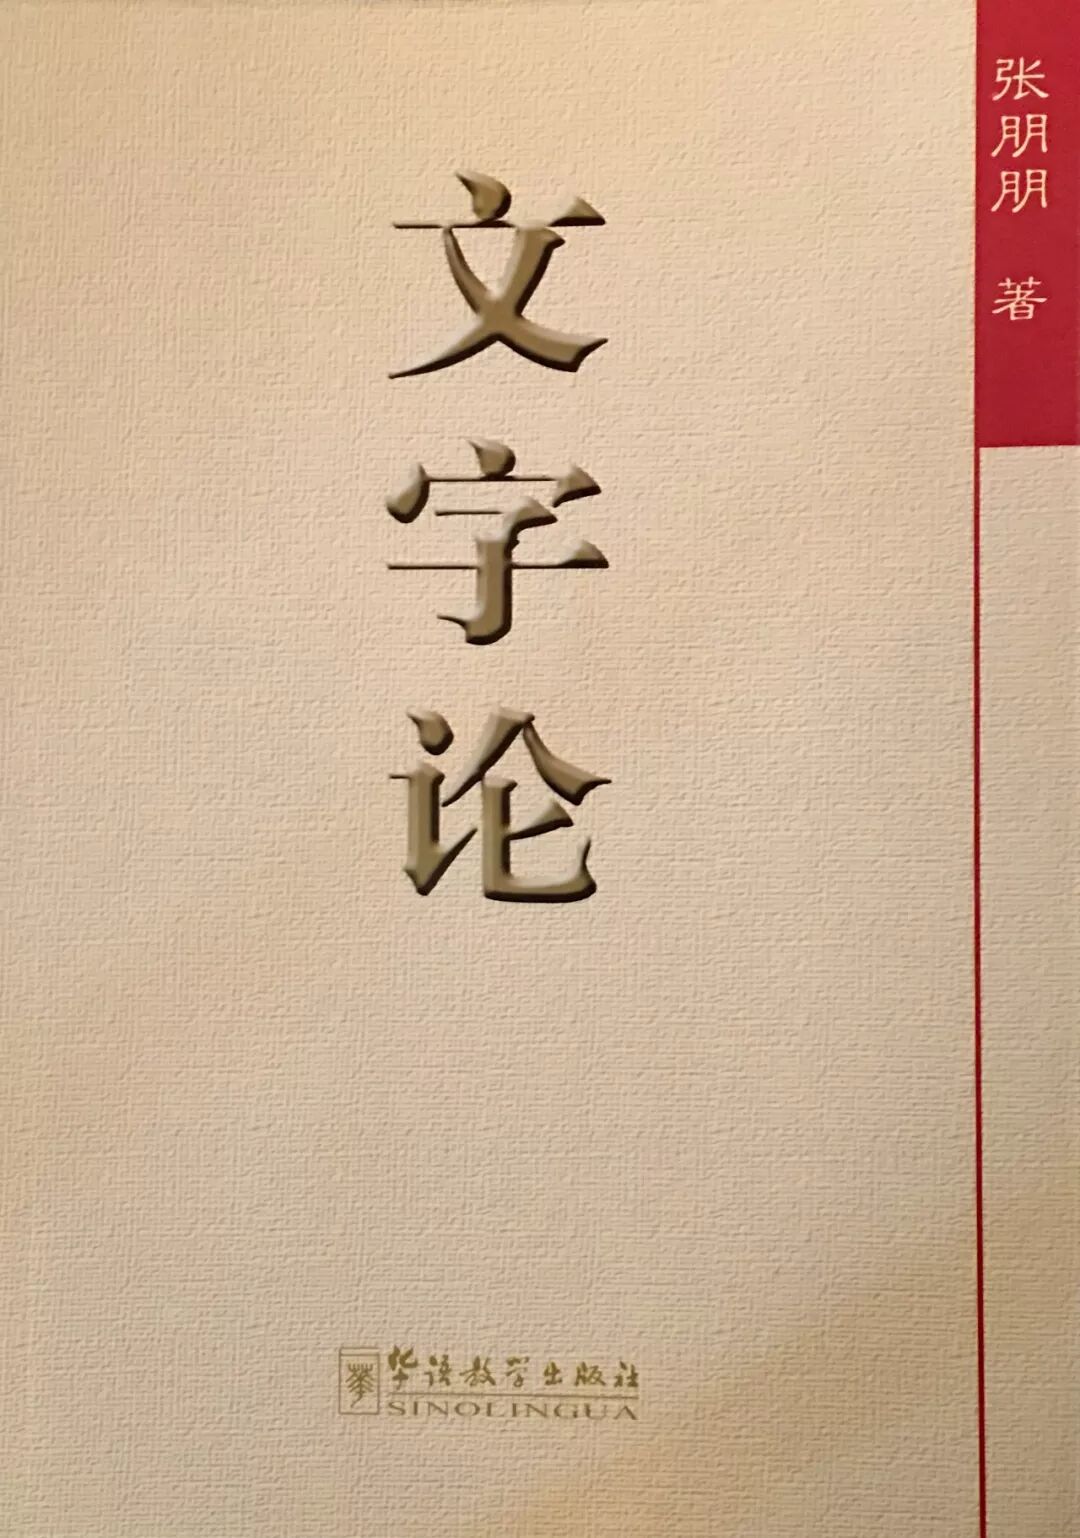 张朋朋 著
文字论
华语教学出版社
SINOLINGUA